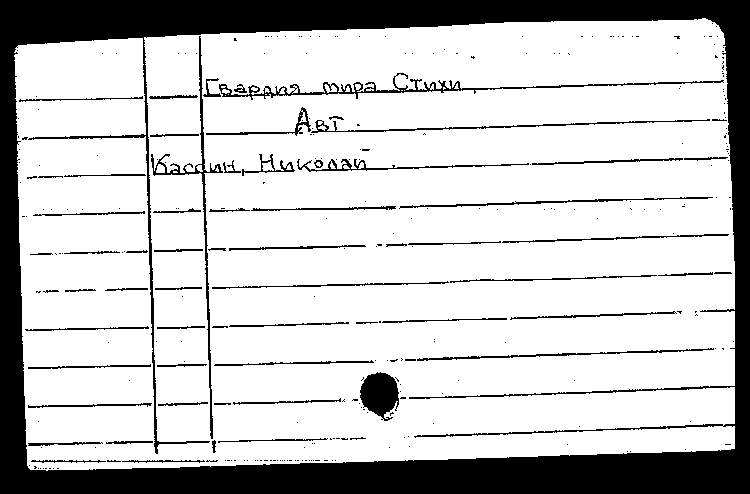 Гвардия мира Стихи.
Авт.
Кассин, Николай.